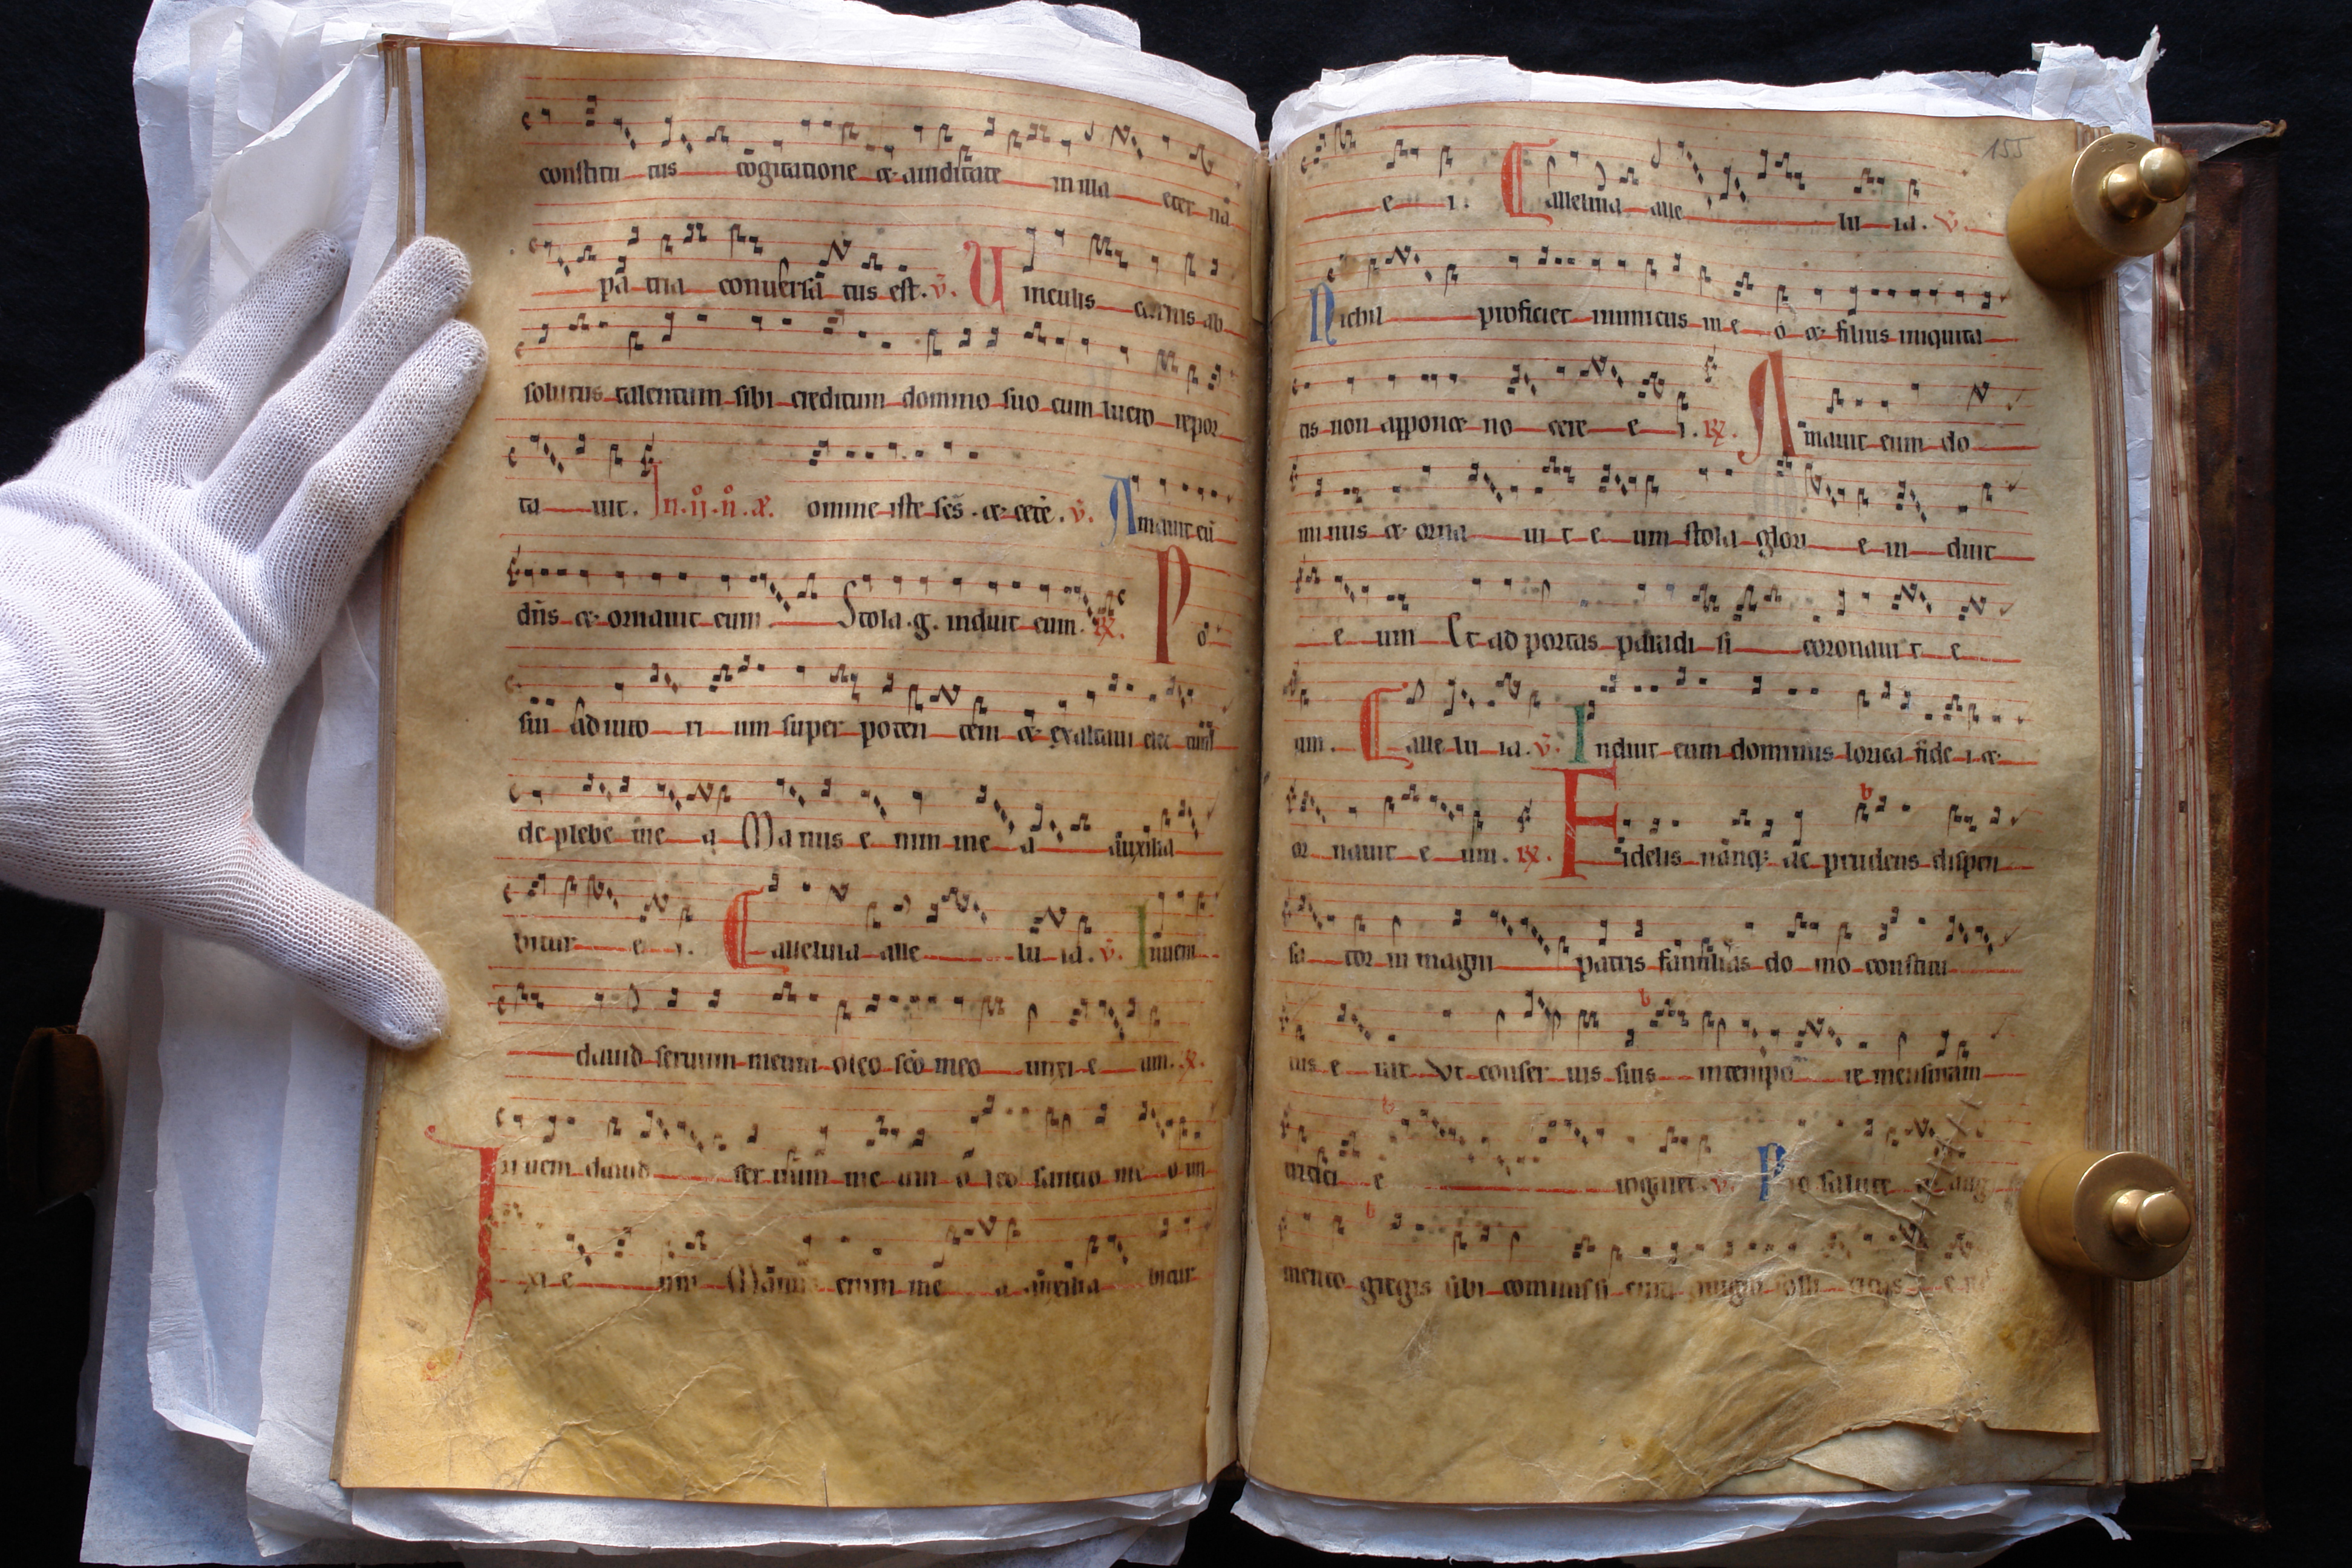 constitu tus cogitatione & auiditate in illa eter nā
pa tria conuersā tus est. v̄. Uinculis carnis ab
solutus talentum sibi creditum domino suo cum lucro repor
ta uit. In .ij. n̄. omine iste scs̄ & cete. v̄. Amauit eū
dn̄s & ornauit eum Stola .g. induit eum. R̄. Po
sui adiuto ri um super poten tem & exaltaui
de plebe me a Manus e nim me a auxilia
bitur e i. E alleluia alle lu ia. v̄. Inueni
dauid seruum meum oleo scō meo unxi e um. R̄.
Inueni dauid ser uum me um o leo sancto me o un
xi e um Manus enim me a auxilia bitur
155
e i. E alleluia alle lu ia. v̄.
Nichil proficiet inimicus in e o & filius iniquita
tis non apponet no cere e i. R̄. Amauit eum do
mi nus & orna ui t e um stola glori e in duit
e um Et ad portas paradi si coronaui t e
um. E alle lu ia. v̄. Induit eum dominus lorica fide i &
or nauit e um. R̄. Fidelis namq; ac prudens dispen
sa tor in magni patris familias do mo constitu
tus e uit Vt conser uis suis in tempo re mensuram
tritici e rogaret. v̄. Pro salute & aug
mento gregis sibi commissi cura